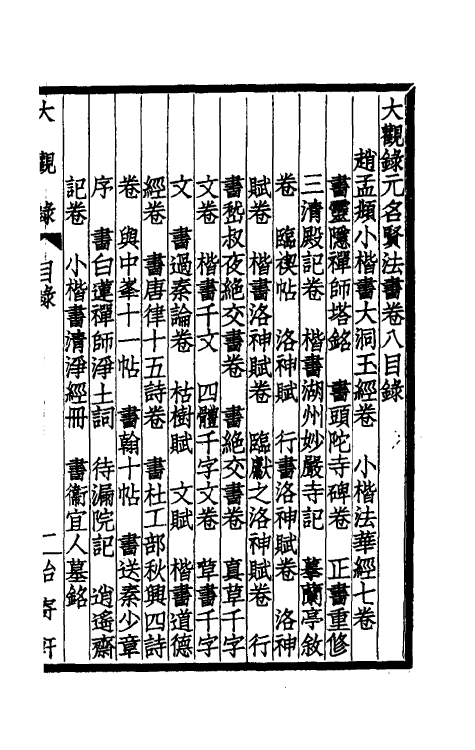 大觀錄元名賢法書卷八目錄
趙孟頫小楷書大洞玉經卷　小楷法華經七卷
書靈隱禪師塔銘　書頭陀寺碑卷　正書重修
三清殿記卷　楷書湖州妙嚴寺記　摹蘭亭敘
卷　臨禊帖　洛神賦　行書洛神賦卷　洛神
賦卷　楷書洛神賦卷　臨獻之洛神賦卷　行
書嵇叔夜絕交書卷　書絕交書卷　真草千字
文卷　楷書千文　四體千字文卷　草書千字
文　書過秦論卷　枯樹賦　文賦　楷書道德
經卷　書唐律十五詩卷　書杜工部秋興四詩
卷　與中峯十一帖　書翰十帖　書送秦少章
序　書白蓮禪師淨土詞　待漏院記　逍遙齋
記卷　小楷書清淨經冊　書衞宜人墓銘
大觀錄　目錄　二　怡寄軒